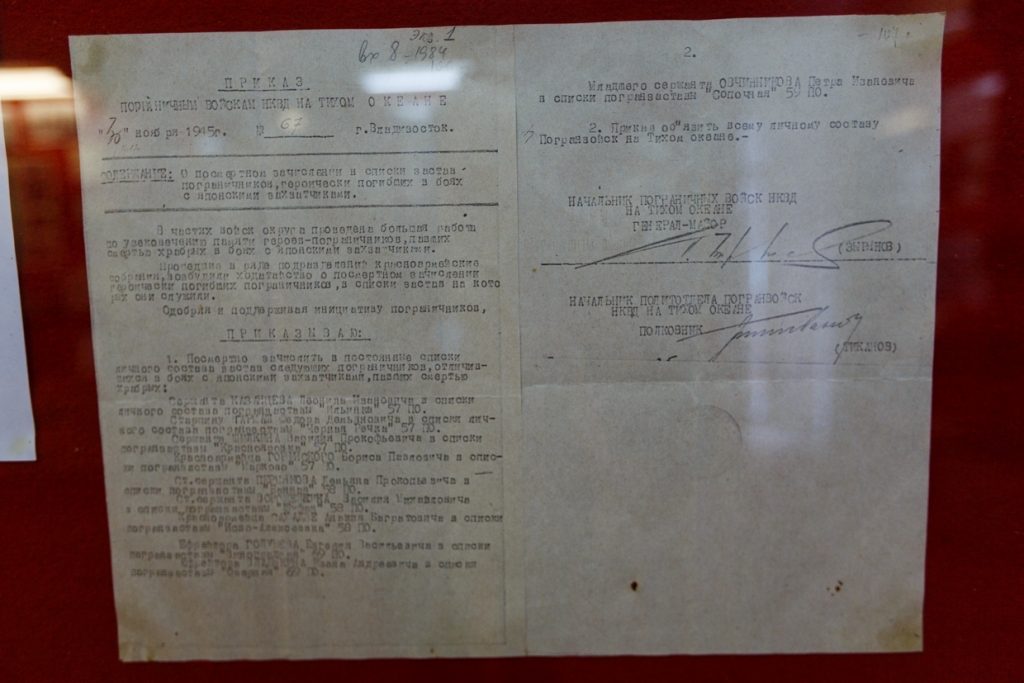 Экз. 1
вх 8-1984
П Р И К А З
ПОГРАНИЧНЫМ ВОЙСКАМ НКВД НА ТИХОМ ОКЕАНЕ
"30" ноября 1945г. № 67 г.Владивосток.
СОДЕРЖАНИЕ: О посмертном зачислении в списки застав
пограничников, героически погибших в боях
с японскими захватчиками.
В частях войск округа проведена большая работа
по увековечению памяти героев-пограничников, павших
смертью храбрых в боях с японскими захватчиками.
Проведенные в ряде подразделений красноармейские
собрания, возбудили ходатайство о посмертном зачислении
героически погибших пограничников, в списки застав на кото
рых они служили.
Одобряя и поддерживая инициативу пограничников,
П Р И К А З Ы В А Ю:
1. Посмертно зачислить в постоянные списки
личного состава застав следующих пограничников, отличив-
шихся в боях с японскими захватчиками, павших смертью
храбрых:
Сержанта Леонида Ивановича в списки
личного состава погранзаставы "Ильинка" 57 ПО.
Старшину Федора Демьяновича в списки лич-
ного состава погранзаставы "Черная Речка" 57 ПО.
Сержанта Василия Прокофьевича в списки
погранзаставы 57 ПО.
Красноармейца Бориса Павловича в спис-
ки погранзаставы "Марково" 57 ПО.
Ст.сержанта Демьяна Прокопьевича в
списки погранзаставы 58 ПО.
Ст.сержанта Василия Михайловича
в списки погранзаставы 58 ПО.
Красноармейца Багратовича в списки
погранзаставы "Ново-Алексеевка" 58 ПО.
Ефрейтора ГОЛУБЕВА Евгения Васильевича в списки
погранзаставы 69 ПО.
Ефрейтора Ивана Андреевича в списки
погранзаставы 69 ПО.
2.
Младшего сержанта ОВЧИННИКОВА Петра Ивановича
в списки погранзаставы "Сопочная" 59 ПО.
2. Приказ об'явить всему личному составу
Погранвойск на Тихом океане.-
НАЧАЛЬНИК ПОГРАНИЧНЫХ ВОЙСК НКВД
НА ТИХОМ ОКЕАНЕ
ГЕНЕРАЛ-МАЙОР
(ЗЫРЯНОВ)
НАЧАЛЬНИК ПОЛИТОТДЕЛА ПОГРАНВОЙСК
НКВД НА ТИХОМ ОКЕАНЕ
ПОЛКОВНИК
(ТИКАНОВ)